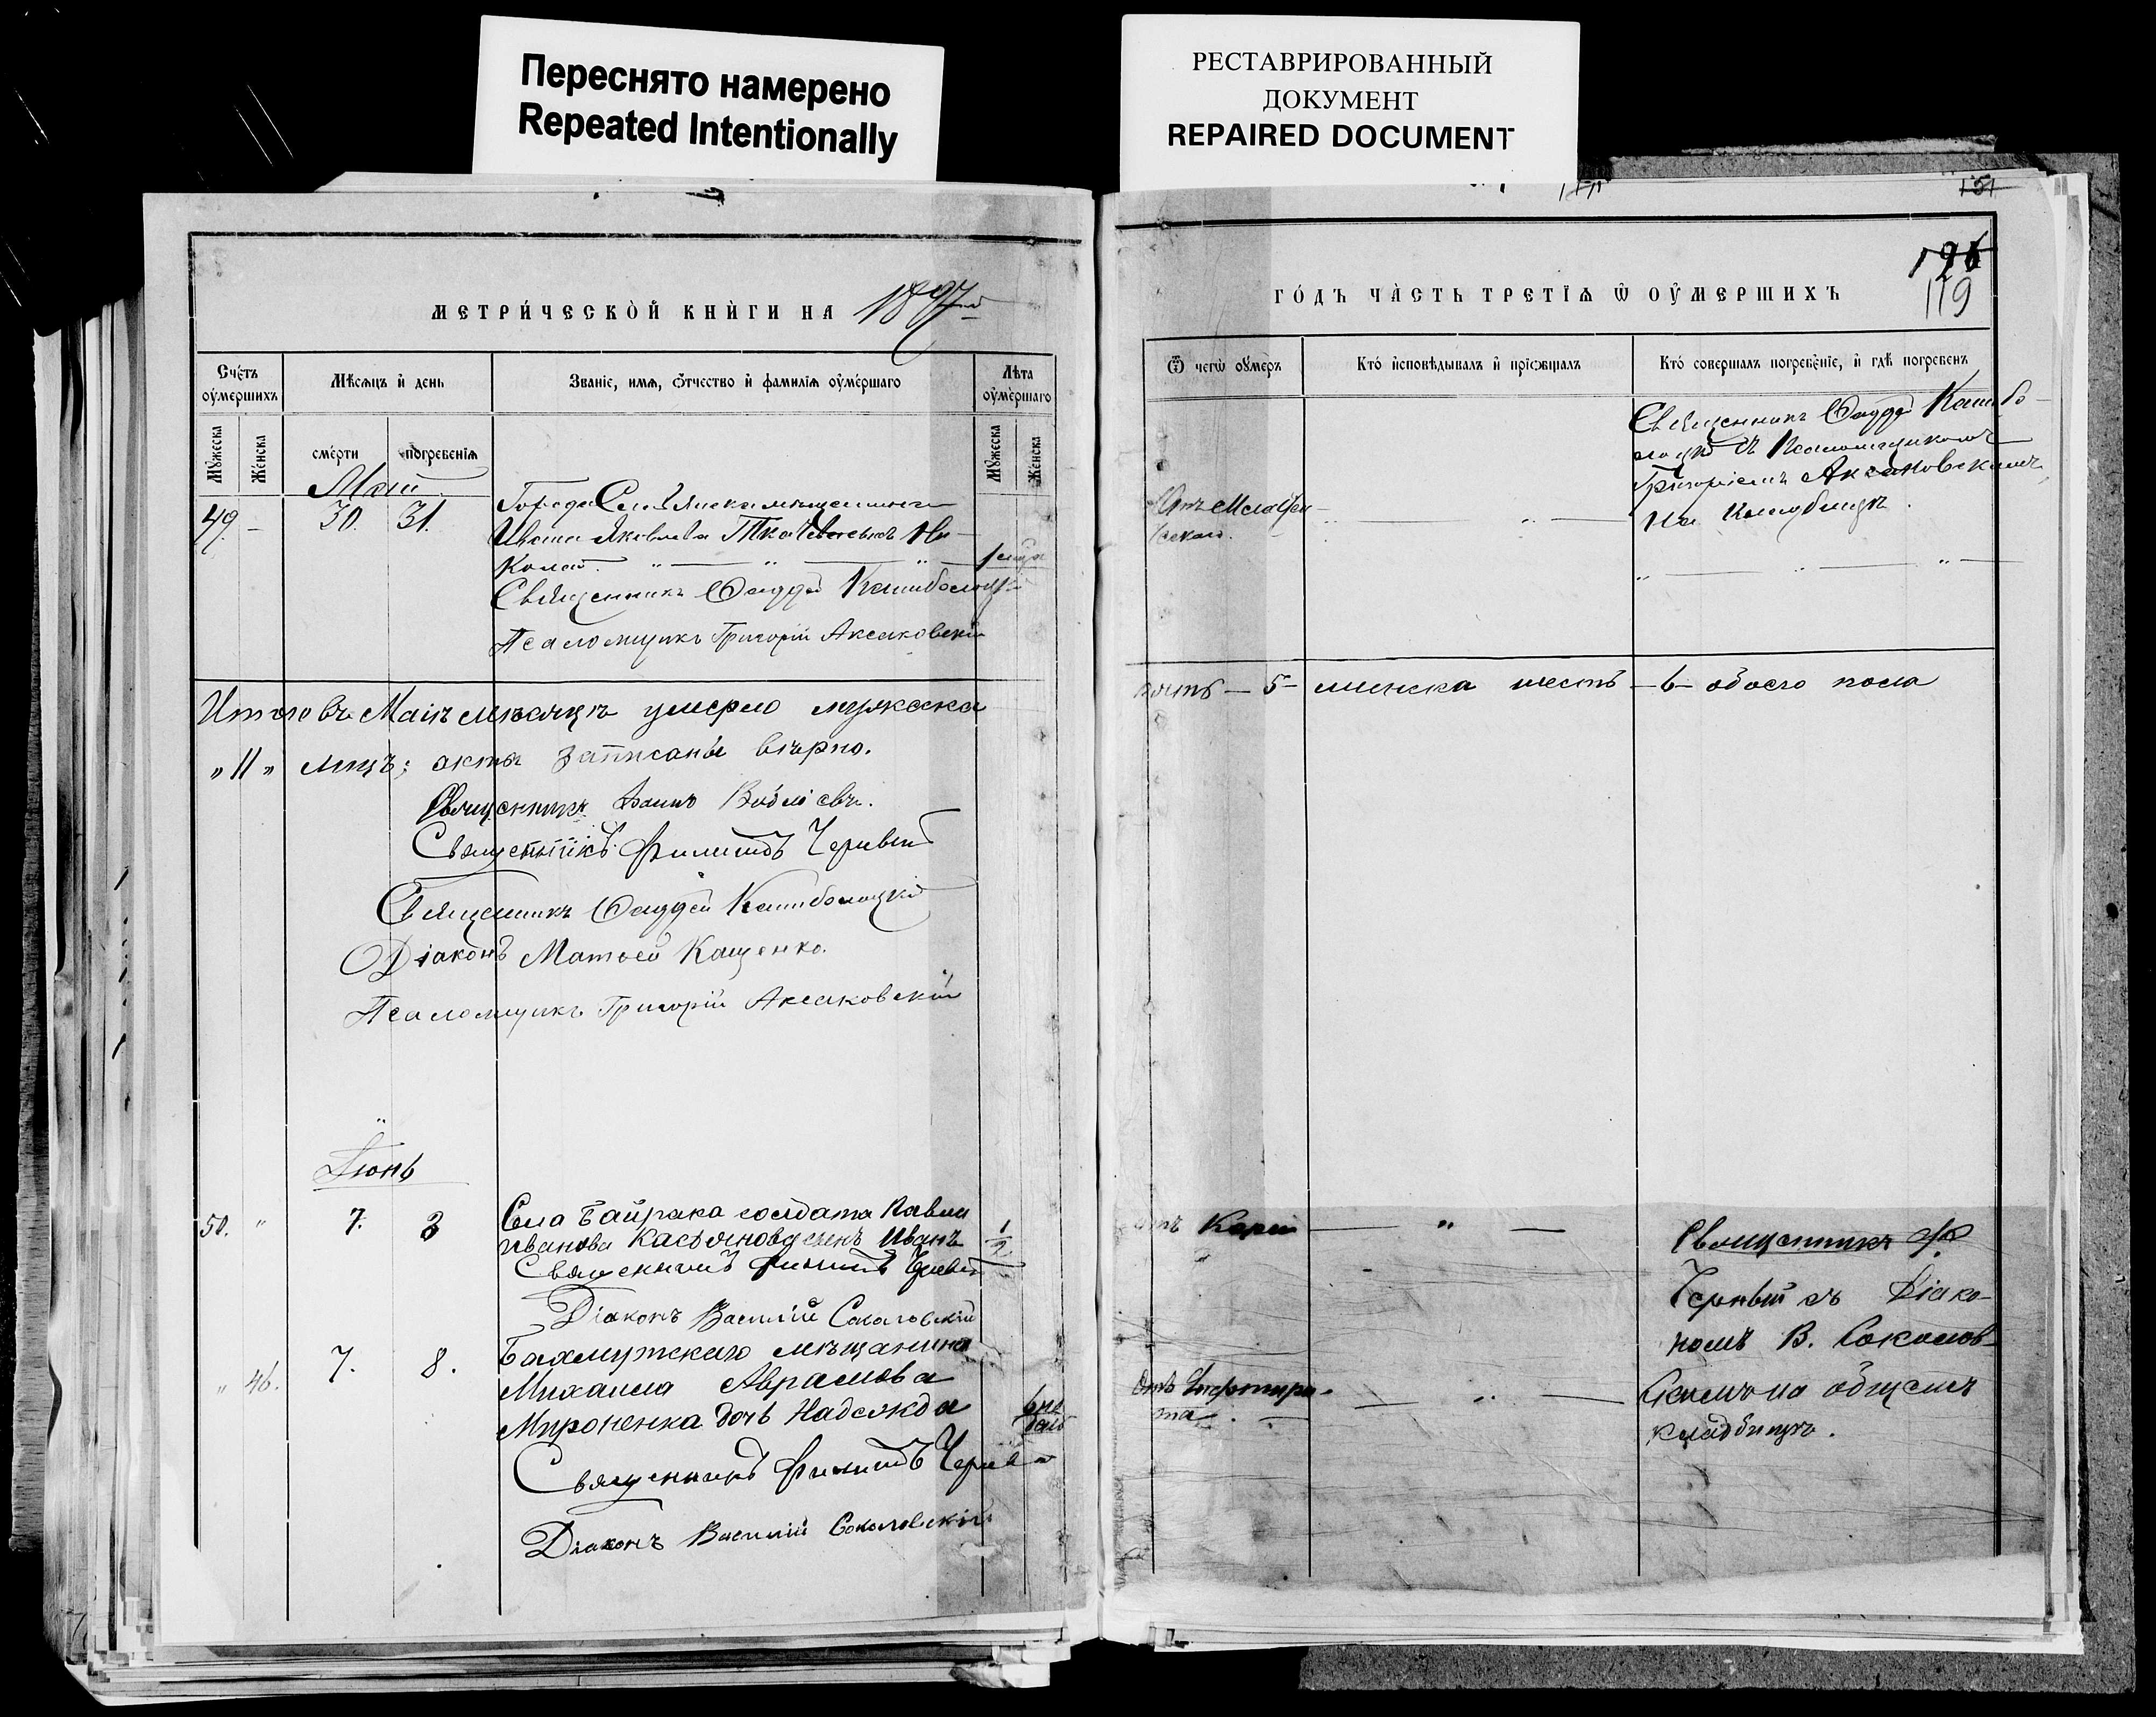 Переснято намерено
Repeated Intentionally
РЕСТАВРИРОВАННЫЙ
ДОКУМЕНТ
REPAIRED DOCUMENT
МЕТРИ́ЧЕСКО̀Й КНЍГИ НА 1897й
Сче́тъ ѹ҆ме́ршихъ
Мѣ́сяцъ и҆ день
Зва́ніе, имѧ, ѻ҆́тчество и҆ фамилія ѹ҆ме́ршаго
Лѣта ѹ҆ме́ршаго
Мꙋ́жеска
Же́нска
сме́рти
погребенія
Мꙋ́жеска
Же́нска
Май
49 – 30. 31.
Города
мѣщанина
Ивана Яковлева Ни-
колай
Священникъ Фаддей
Псаломщикъ Григорій Аксаковскій
Итого въ Маѣ мѣсяцѣ умерло мужеска
„ 11 „ лицъ; акты записаны вѣрно.
Священникъ Іоаннъ
Священникъ Филиппъ
Священникъ Фаддей
Діаконъ Матѳей Кащенко.
Псаломщикъ Григорій Аксаковскій
Іюнь
50. „ 7. 8
Села Байрака солдата Павла
Иванова сынъ Иванъ
1/2
Священникъ Филиппъ
Діаконъ Василій Соколовскій
„ 46. 7. 8.
Бахмутскаго мѣщанина
Михаила Аврамова
Мироненка дочь Надежда
Священникъ Филиппъ
Діаконъ Василій Соколовскій
151
126
119
ГО́ДЪ ЧА̀СТЬ ТРЕТІѦ Ѽ ОУ҆МЕРШИХЪ
Ѿ чегѡ̀ ѹ҆ме́ръ
Кто́ и҆сповѣ́дывалъ и҆ прїѡбща́лъ
Кто́ соверша́лъ погребе́ніе, и҆ гдѣ̀ погребе́нъ
Священникъ Фаддей
съ Псаломщикомъ
Григоріемъ Аксаковскимъ
на кладбищѣ.
пять – 5 – женска шесть – 6 – обоего пола
отъ Кори
Священникъ Ф.
съ Діако-
номъ В. Соколов-
скимъ на общемъ
кладбищѣ.